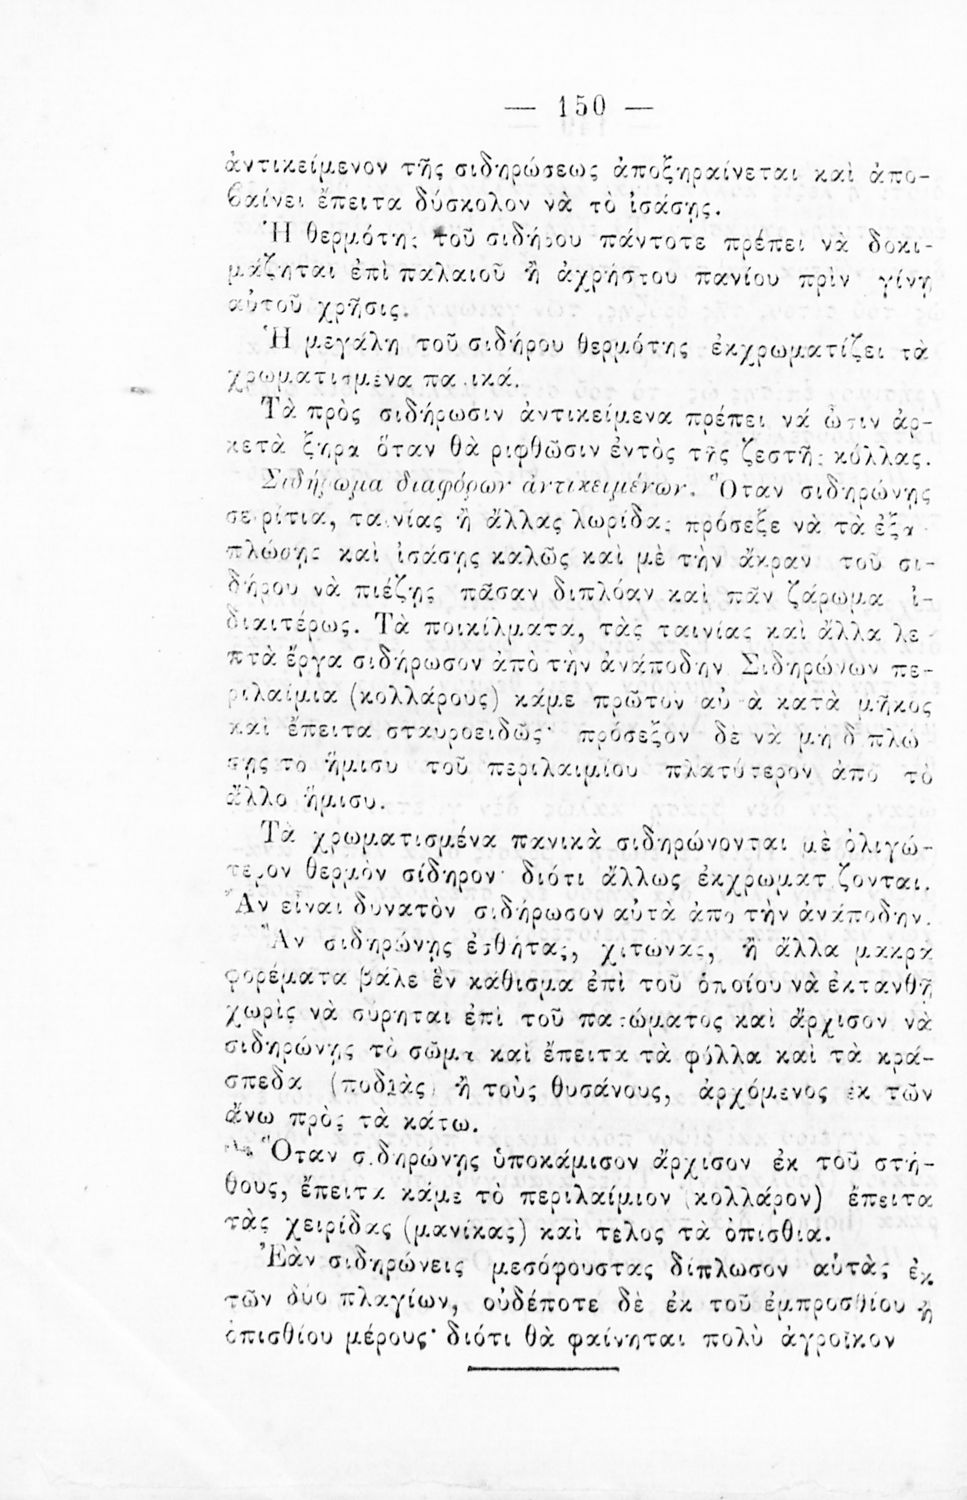 — 150 —
ἀντικείμενον τῆς σιδηρώσεως ἀποξηραίνεται καὶ ἀπο-
βαίνει ἔπειτα δύσκολον νὰ τὸ ἰσάσῃς.
Ἡ θερμότης τοῦ σιδήρου πάντοτε πρέπει νὰ δοκι-
μάζηται ἐπὶ παλαιοῦ ἢ ἀχρήστου πανίου πρὶν γίνῃ
αὐτοῦ χρῆσις.
Ἡ μεγάλη τοῦ σιδήρου θερμότης ἐκχρωματίζει τὰ
χρωματισμένα πανικά.
Τὰ πρὸς σιδήρωσιν ἀντικείμενα πρέπει νά ὦσιν ἀρ-
κετὰ ξηρὰ ὅταν θὰ ριφθῶσιν ἐντὸς τῆς ζεστῆς κόλλας.
Σιδήρωμα διαφόρων ἀντικειμένων. Ὅταν σιδηρώνῃς
σειρίτια, ταινίας ἢ ἄλλας λωρίδας πρόσεξε νὰ τὰ ἐξα-
πλώσῃς καὶ ἰσάσῃς καλῶς καὶ μὲ τὴν ἄκραν τοῦ σι-
δήρου νὰ πιέζῃς πᾶσαν διπλόαν καὶ πᾶν ζάρωμα ἰ-
διαιτέρως. Τὰ ποικίλματα, τὰς ταινίας καὶ ἄλλα λε-
πτὰ ἔργα σιδήρωσον ἀπὸ τὴν ἀνάποδην Σιδηρώνων πε-
ριλαίμια (κολλάρους) κάμε πρῶτον αὐτὰ κατὰ μῆκος
καὶ ἔπειτα σταυροειδῶς· πρόσεξον δε νὰ μη διπλώ
σῃς τὸ ἥμισυ τοῦ περιλαιμίου πλατύτερον ἀπὸ τὸ
ἄλλο ἥμισυ.
Τὰ χρωματισμένα πανικὰ σιδηρώνονται μὲ ὀλιγώ-
τερον θερμὸν σίδηρον· διότι ἄλλως ἐκχρωματίζονται.
Ἂν εἶναι δυνατὸν σιδήρωσον αὐτὰ ἀπο τὴν ἀνάποδην.
Ἂν σιδηρώνῃς ἐσθήτας, χιτώνας, ἢ ἄλλα μακρὰ
φορέματα βάλε ἓν κάθισμα ἐπὶ τοῦ ὁποίου νὰ ἐκτανθῇ
χωρὶς νὰ σύρηται ἐπὶ τοῦ πατώματος καὶ ἄρχισον νὰ
σιδηρώνῃς τὸ σῶμα καὶ ἔπειτα τὰ φύλλα καὶ τὰ κρά-
σπεδα (ποδιὰς) ἢ τοὺς θυσάνους, ἀρχόμενος ἐκ τῶν
ἄνω πρὸς τὰ κάτω.
Ὅταν σιδηρώνῃς ὑποκάμισον ἄρχισον ἐκ τοῦ στή-
θους, ἔπειτα κάμε τὸ περιλαίμιον (κολλάρον) ἔπειτα
τὰς χειρίδας (μανίκας) καὶ τέλος τὰ ὀπισθια.
Ἐὰν σιδηρώνεις μεσόφουστας δίπλωσον αὐτὰς ἐκ
τῶν δύο πλαγίων, οὐδέποτε δὲ ἐκ τοῦ ἐμπροσθίου ἢ
ὀπισθίου μέρους· διότι θὰ φαίνηται πολὺ ἀγροῖκον